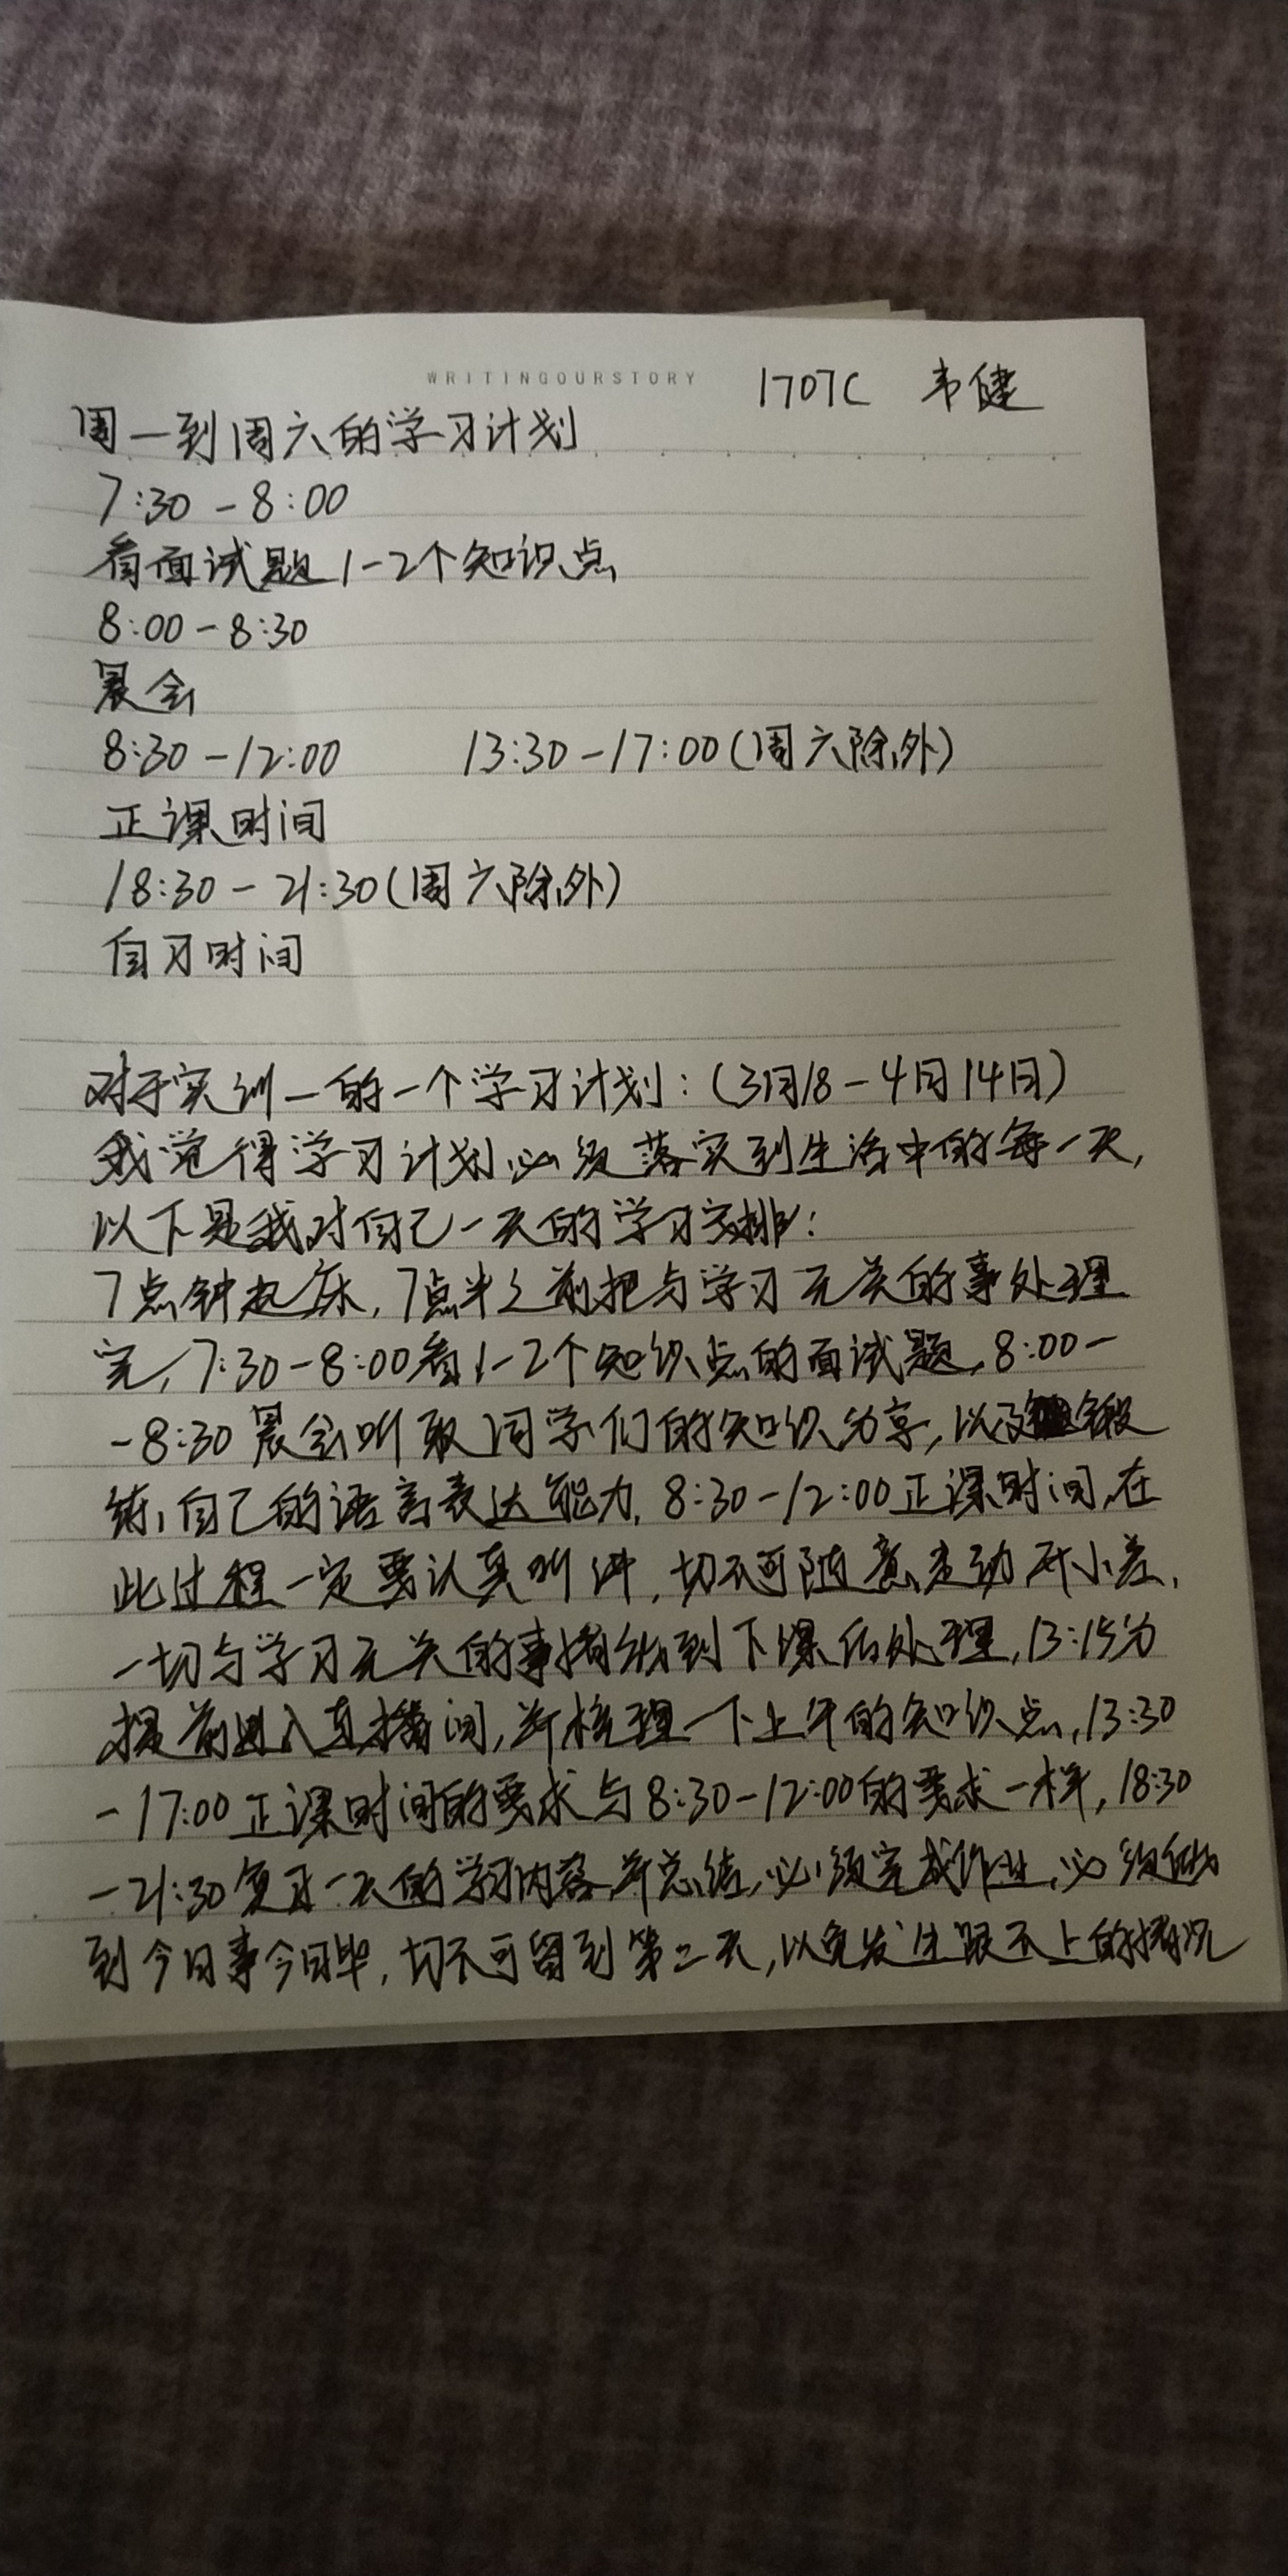 WRITINGOURSTORY 1707C 韦健
周一到周六的学习计划
7:30-8:00
看面试题1-2个知识点
8:00-8:30
晨会
8:30-12:00 13:30-17:00(周六除外)
正课时间
18:30-21:30(周六除外)
自习时间
对于实训一的一个学习计划:(3月18-4月14日)
我觉得学习计划必须落实到生活中的每一天,
以下是我对自己一天的学习安排:
7点钟起床,7点半之前把与学习无关的事处理
完,7:30-8:00看1-2个知识点的面试题,8:00-
-8:30晨会听取同学们的知识分享,以及锻
练自己的语言表达能力,8:30-12:00正课时间,在
此过程一定要认真听讲,切不可随意走动开小差,
一切与学习无关的事情给到下课后处理,13:15分
提前进入直播间,并梳理一下上午的知识点,13:30
-17:00正课时间的要求与8:30-12:00的要求一样,18:30
-21:30复习一天的学习内容,并总结,必须完成作业,必须做
到今日事今日毕,切不可留到第二天,以免发生跟不上的情况